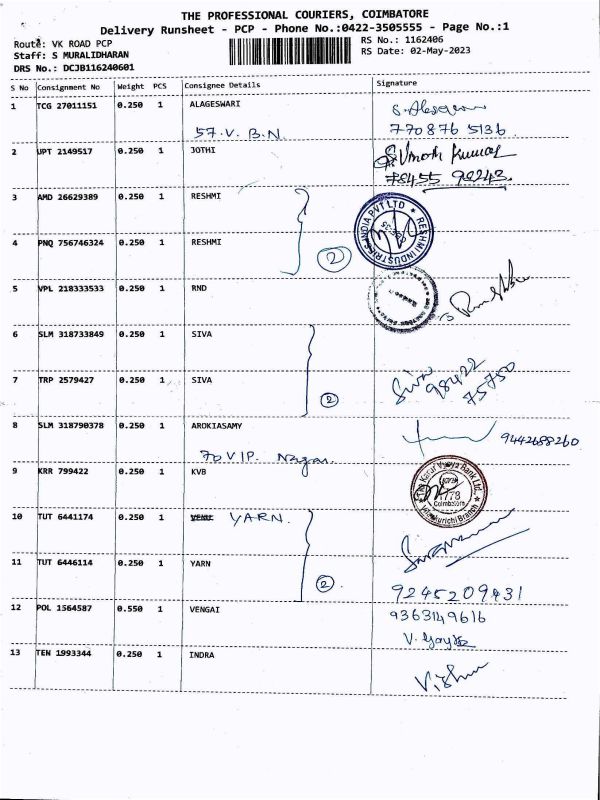 THE PROFESSIONAL COURIERS, COIMBATORE
Delivery Runsheet - PCP - Phone No.:0422-3505555 - Page No.:1
Route: VK ROAD PCP RS No.: 1162406
Staff: S MURALIDHARAN RS Date: 02-May-2023
DRS No.: DCJB116240601
S No Consignment No Weight PCS Consignee Details Signature
1 TCG 27011151 0.250 1 ALAGESWARI
57. V. B. N. 770876 5136
2 UPT 2149517 0.250 1 JOTHI S. Vinoth Kumar
78455 98243
3 AMD 26629389 0.250 1 RESHMI
RESHMI INDUSTRIES INDIA PVT LTD
4 PNQ 756746324 0.250 1 RESHMI
2
5 VPL 218333533 0.250 1 RND
6 SLM 318733849 0.250 1 SIVA
7 TRP 2579427 0.250 1 SIVA Siva 98422
75750
2
8 SLM 318790378 0.250 1 AROKIASAMY 9442688260
70 VIP. Nagar.
9 KRR 799422 0.250 1 KVB
The Karur Vysya Bank Ltd.
Coimbatore
Vilankurichi Branch
10 TUT 6441174 0.250 1 YARN.
11 TUT 6446114 0.250 1 YARN
2 9245209431
12 POL 1564587 0.550 1 VENGAI 9363149616
13 TEN 1993344 0.250 1 INDRA